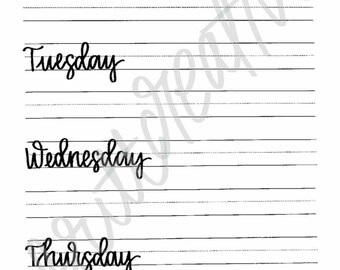 Tuesday
Wednesday
Thursday